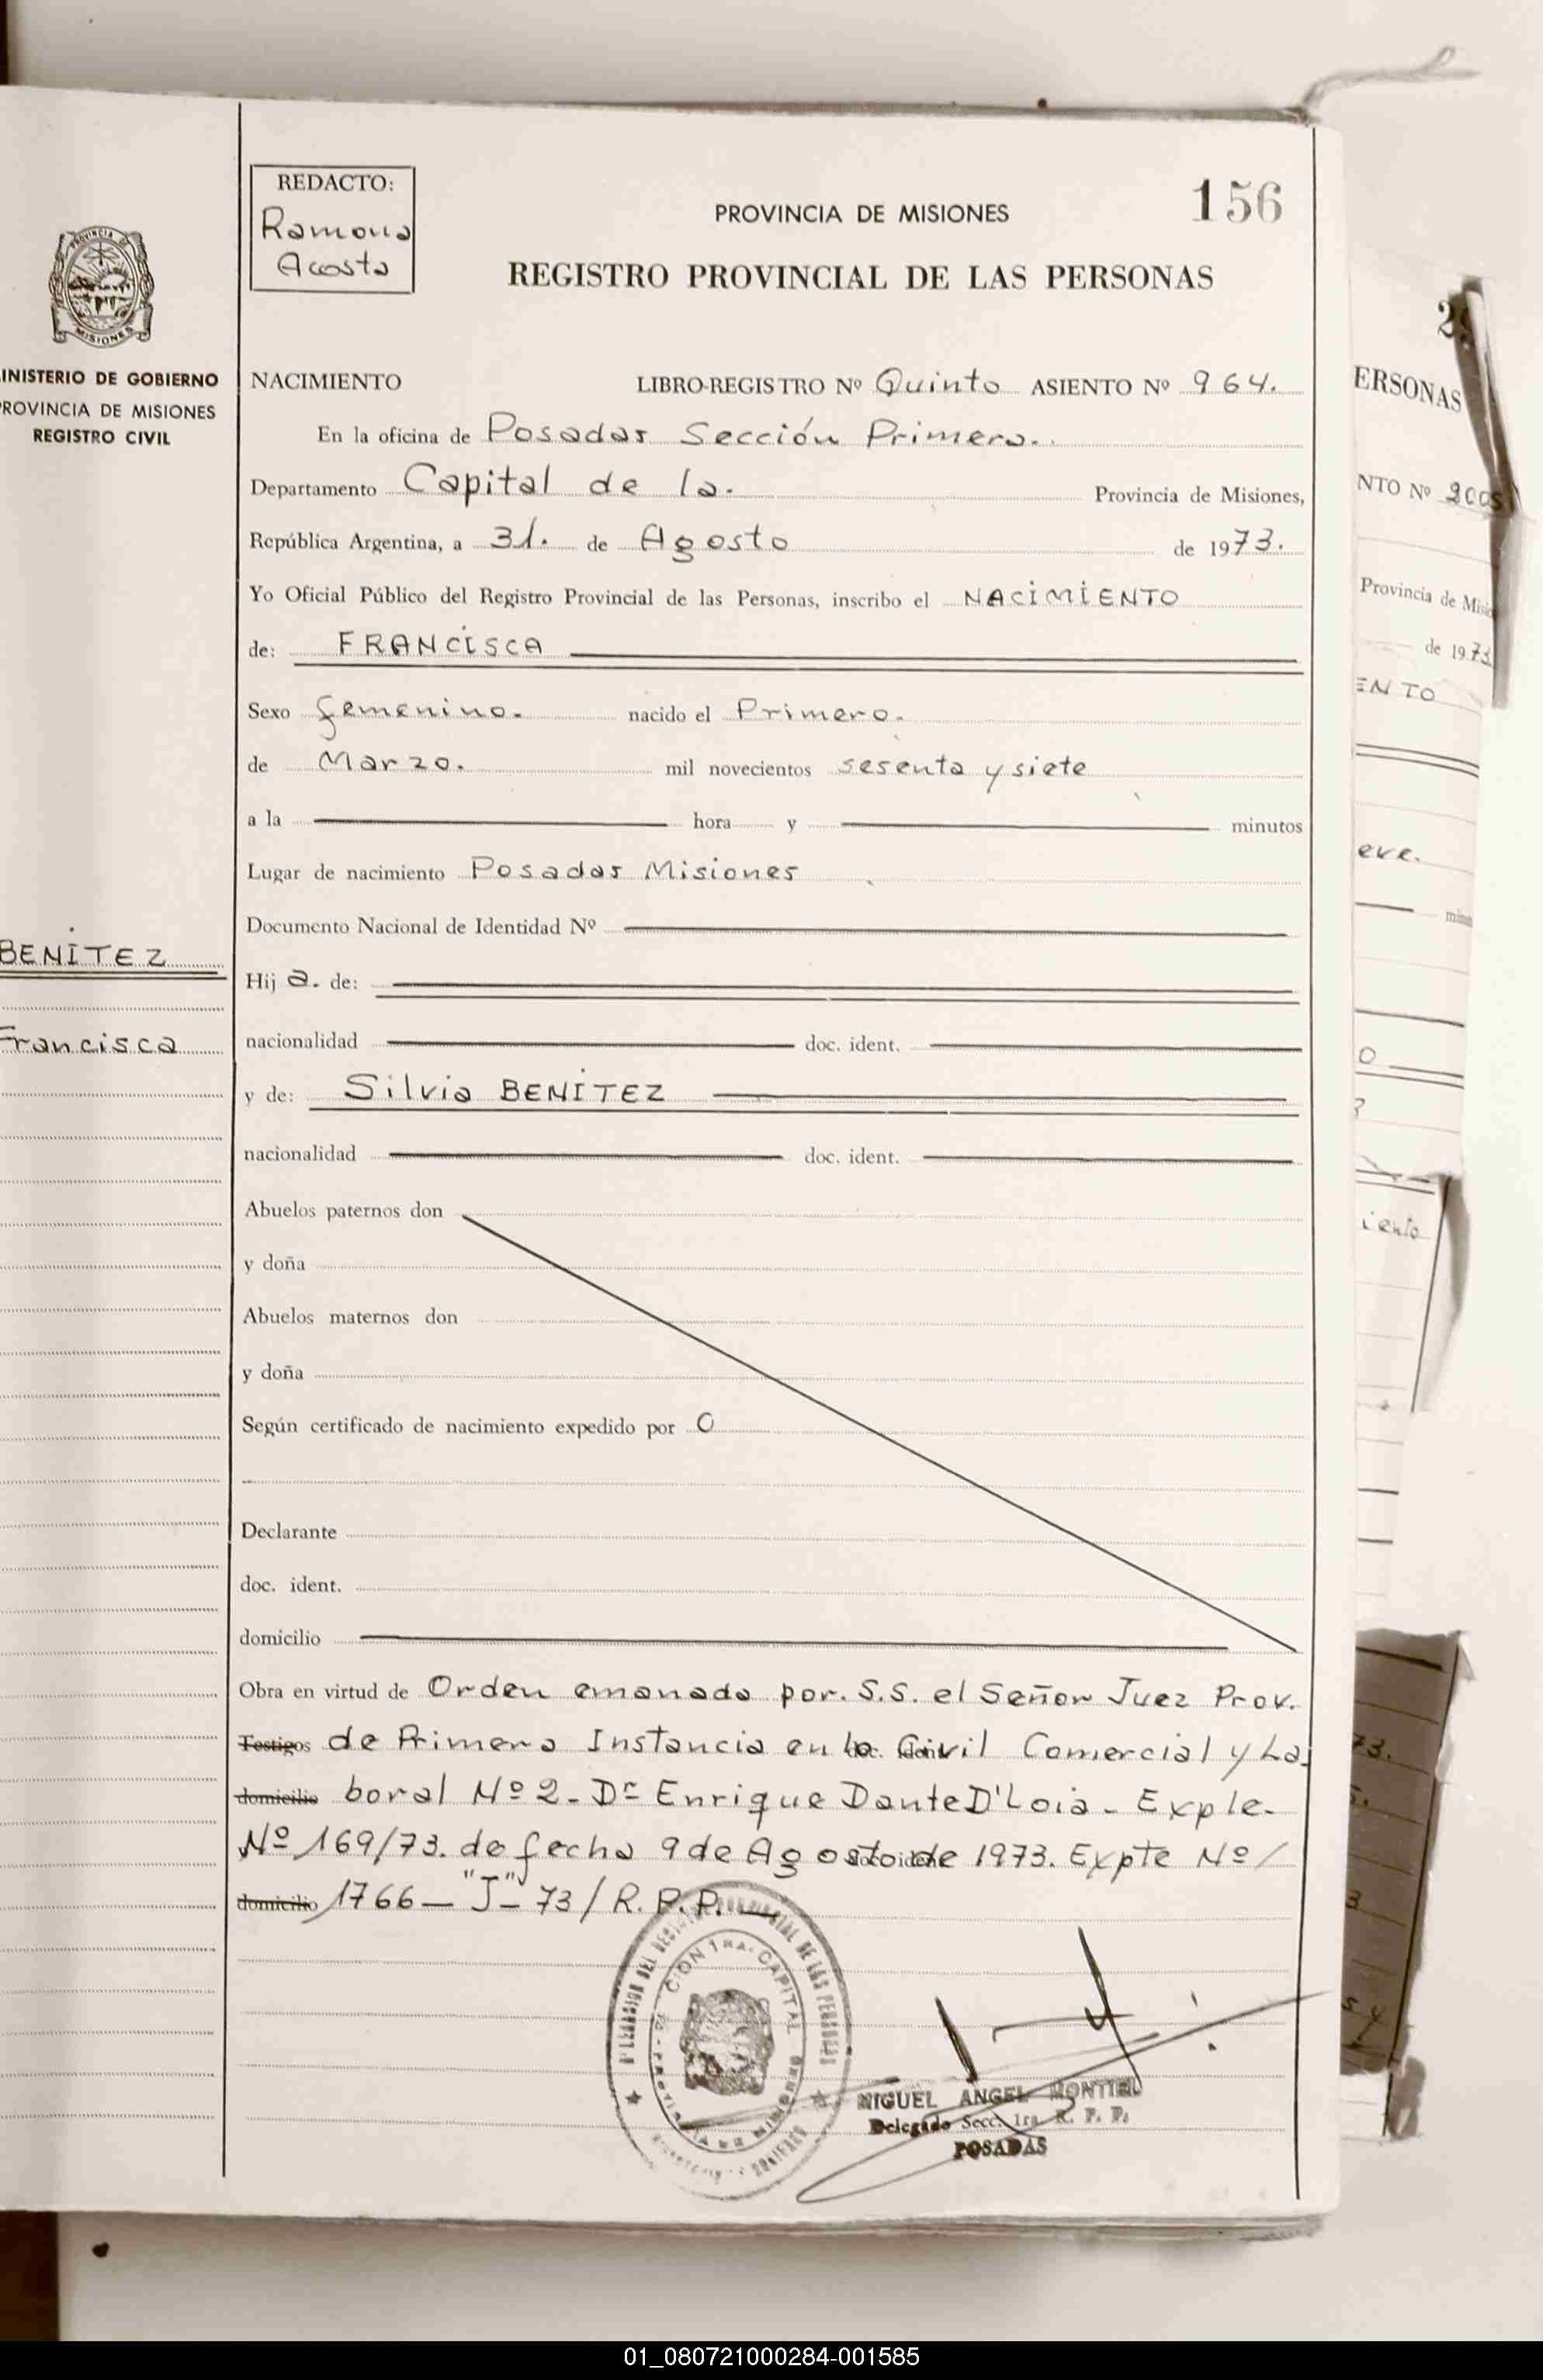 REDACTO:
Ramona
Acosta
156
PROVINCIA DE MISIONES
REGISTRO PROVINCIAL DE LAS PERSONAS
MISIONES
INISTERIO DE GOBIERNO
ROVINCIA DE MISIONES
REGISTRO CIVIL
BENITEZ
Francisca
NACIMIENTO LIBRO-REGISTRO Nº Quinto ASIENTO Nº 964.
En la oficina de Posadas Sección Primera.
Departamento Capital de la. Provincia de Misiones,
República Argentina, a 31. de Agosto de 1973.
Yo Oficial Público del Registro Provincial de las Personas, inscribo el NACIMIENTO
de: FRANCISCA
Sexo femenino. nacido el Primero.
de Marzo. mil novecientos sesenta y siete
a la hora y minutos
Lugar de nacimiento Posadas Misiones
Documento Nacional de Identidad Nº
Hij a. de:
nacionalidad doc. ident.
y de: Silvia BENITEZ
nacionalidad doc. ident.
Abuelos paternos don
y doña
Abuelos maternos don
y doña
Según certificado de nacimiento expedido por
Declarante
doc. ident.
domicilio
Obra en virtud de Orden emanada por. S.S. el Señor Juez Prov.
Testigos de Primera Instancia en lo Civil Comercial y La
domicilio boral Nº 2 - Dr Enrique Dante D'Loia - Exple.
Nº 169/73. de fecha 9 de Agosto de 1973. Expte Nº/
domicilio 1766 - "J" - 73 / R.P.P.
MIGUEL ANGEL MONTIEL
Delegado Secc. 1ra. R. P. P.
POSADAS
ERSONAS
NTO Nº
Provincia de Misi
de 1973
ENTO
eve.
iento
01_080721000284-001585